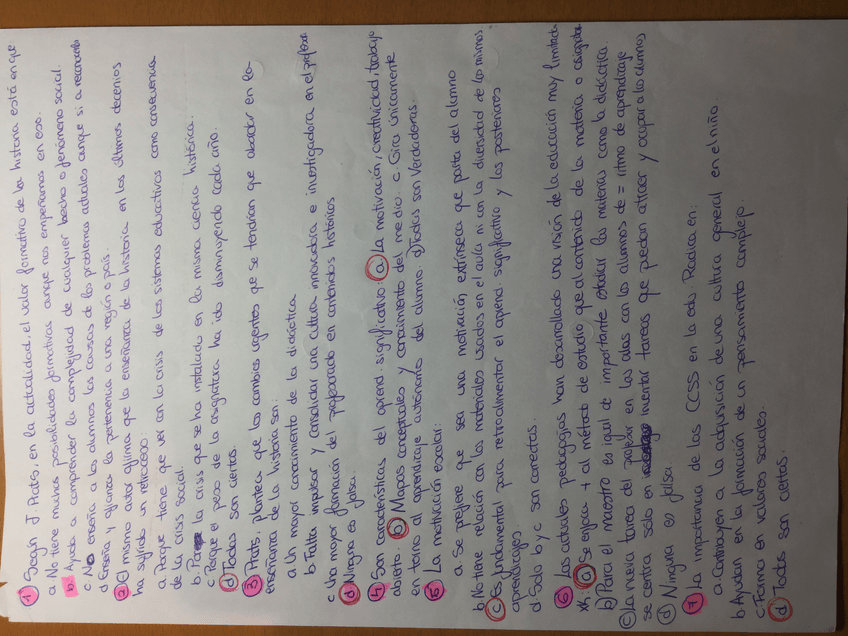 1 Según J Prats, en la actualidad, el valor formativo de la historia está en que
a No tiene muchas posibilidades formativas aunque nos empeñamos en eso.
b Ayuda a comprender la complejidad de cualquier hecho o fenómeno social.
c No enseña a los alumnos las causas de los problemas actuales aunque si a reconocerlo
d Enseña y afianza la pertenencia a una región o país.
2 El mismo autor afirma que la enseñanza de la historia en los últimos decenios
ha sufrido un retroceso:
a. Porque tiene que ver con la crisis de los sistemas educativos como consecuencia
de la crisis social.
b. Por la crisis que se ha instalado en la misma ciencia histórica.
c. Porque el peso de la asignatura ha ido disminuyendo cada año.
d Todas son ciertas.
3 Prats, plantea que los cambios urgentes que se tendrían que abordar en la
enseñanza de la historia son:
a Un mayor conocimiento de la didáctica
b Falta impulsar y consolidar una cultura innovadora e investigadora en el profesor
c Una mayor formación del profesorado en contenidos históricos
d Ninguna es falsa
4 Son características del aprend. significativo: a La motivación, creatividad, trabajo
abierto. b Mapas conceptuales y conocimiento del medio. c Gira únicamente
en torno al aprendizaje autónomo del alumno d Todas son Verdaderas.
5 La motivación escolar:
a. Se prefiere que sea una motivación extrínseca que parta del alumno
b. No tiene relación con los materiales usados en el aula ni con la diversidad de los mismos.
c Es fundamental para retroalimentar el aprend. significativo y los posteriores
aprendizajes
d Solo b y c son correctas.
6 Las actuales pedagogías han desarrollado una visión de la educación muy limitada
xk: a Se enfoca + al método de estudio que al contenido de la materia o asignatura
b) Para el maestro es igual de importante estudiar las materias como la didáctica.
c) La nueva tarea del profesor en las aulas con los alumnos de = ritmo de aprendizaje
se centra solo en inventar tareas que puedan atraer y ocupar a los alumnos
d Ninguna es falsa
7 La importancia de las CCSS en la edu. Radica en:
a Contribuyen a la adquisición de una cultura general en el niño
b Ayudan en la formación de un pensamiento complejo.
c. Forma en valores sociales.
d Todas son ciertas.